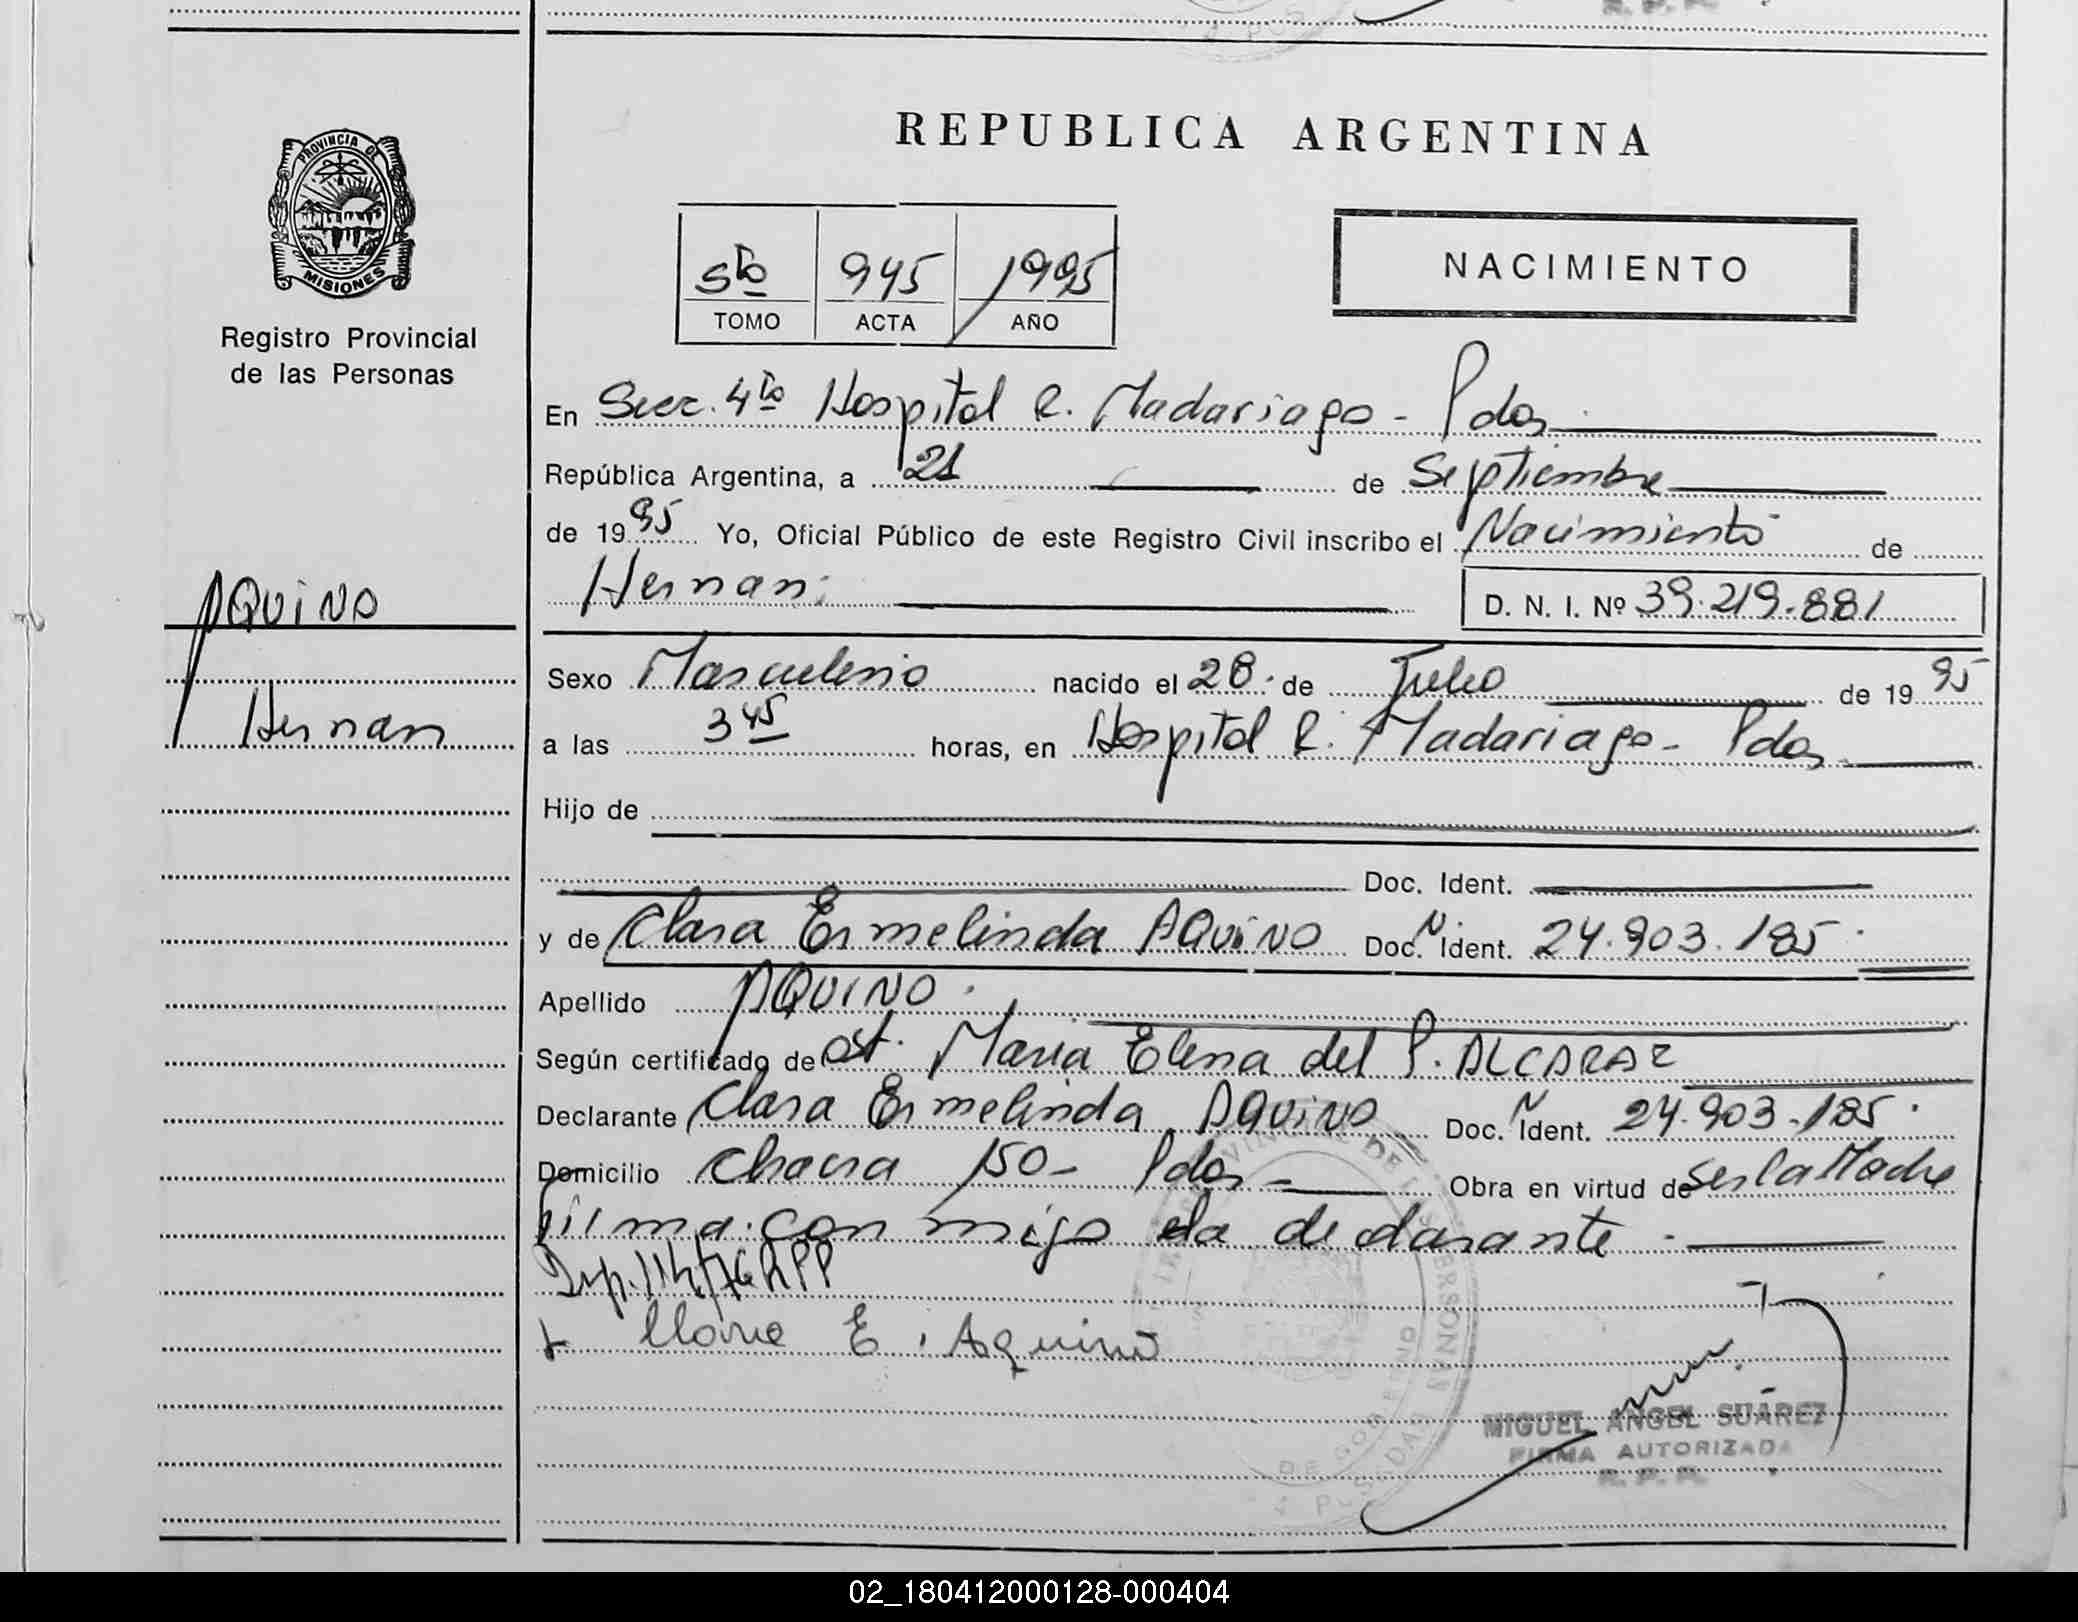 REPUBLICA ARGENTINA
PROVINCIA DE
MISIONES
Registro Provincial
de las Personas
5to 945 1995
TOMO ACTA AÑO
NACIMIENTO
En Secc. 4ta Hospital R. Madariaga - Pdas
República Argentina, a 21 de Septiembre
de 1995 Yo, Oficial Público de este Registro Civil inscribo el Nacimiento de
Hernan D. N. I. Nº 39.219.881
AQUINO
Hernan
Sexo Masculino nacido el 28 de Julio de 1995
a las 3 45 horas, en Hospital R. Madariaga - Pdas
Hijo de
Doc. Ident.
y de Clara Ermelinda AQUINO Doc. Ident. 24.903.185
Apellido AQUINO
Según certificado de Ost. Maria Elena del P. ALCARAZ
Declarante Clara Ermelinda AQUINO Doc. Ident. 24.903.185
Domicilio Chacra 150 - Pdas - Obra en virtud de ser la Madre
firma conmigo la declarante
Disp. 114/76 RPP
E. Aquino
MIGUEL ANGEL SUÁREZ
FIRMA AUTORIZADA
R. P. P.
02_180412000128-000404